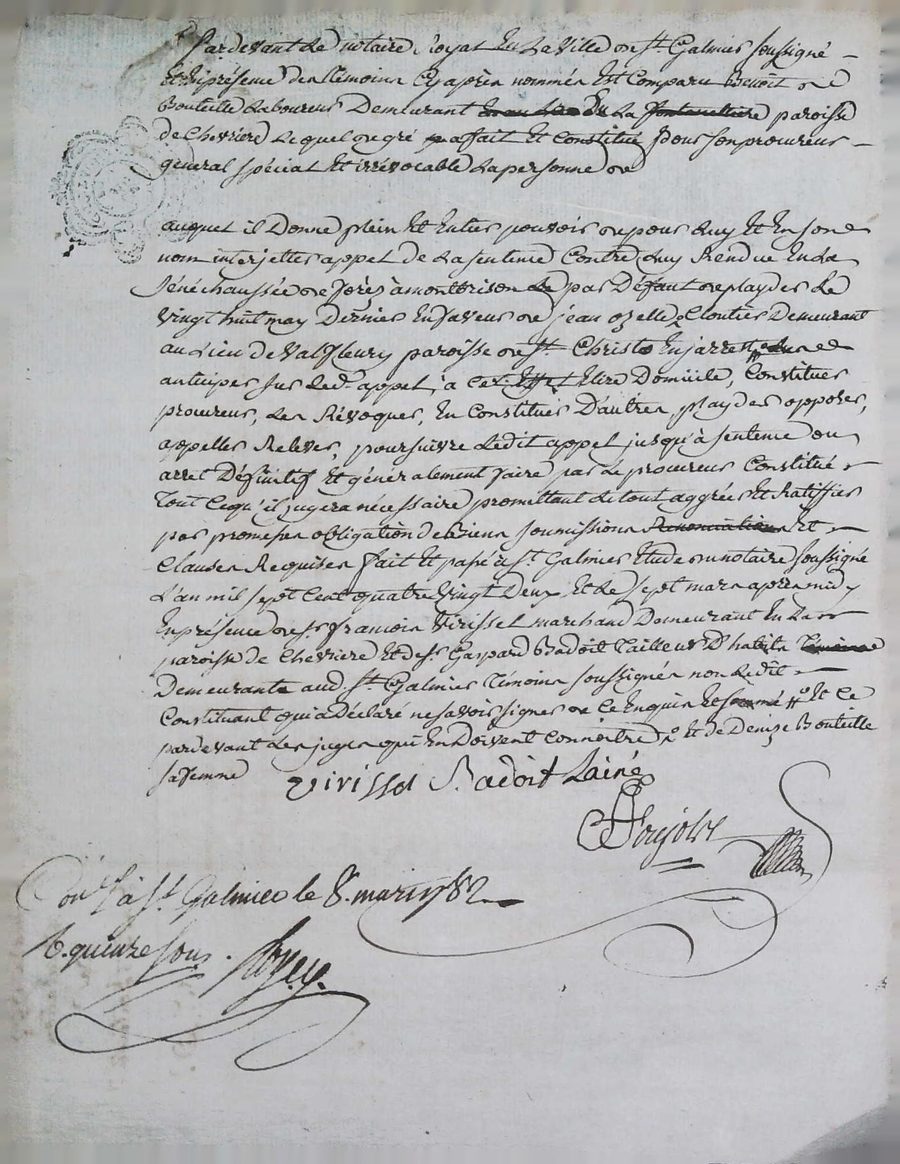 Pardevant Le notaire Royal En La Ville de St. Galmier soussigné
Et En présence des témoins Cy après nommés Est Comparu Benoit
Bouteille Laboureur Demeurant paroisse
de Chevriere Lequel de gré a fait Et Constitué pour son procureur
général spécial Et irrévocable La personne de
auquel il Donne plein Et Entier pouvoir de pour Luy Et En son
nom interjetter appel de La sentence Contre Luy Rendue En La
Sénéchaussée de forès à montbrison par Défaut de playder Le
Vingt huit may Dernier En faveur de jean ozelle Cloutier Demeurant
au Lieu de Valfleury paroisse de St. Christo En jarrest
anticiper sur Led. appel, à Cet Effet Elire Domicile, Constituer
procureur, Les Révoquer, En Constituer D'autres, playder, opposer,
appeller Relever, poursuivre Ledit appel jusqu'à sentence ou
arret Définitif Et généralement faire par Le procureur Constitué
Tout Ce qu'il jugera nécessaire promettant Le tout aggréer Et Ratiffier
par promesses obligation de Biens soumissions Renonciations Et
Clauses Requises fait Et passé à St. Galmier Etude du notaire soussigné
L'an mil sept Cent quatre Vingt Deux Et Le sept mars après midy
En présence de sr. françois Virisset marchand Demeurant En La
paroisse de Chevriere Et de sr. Gaspard Badoit Tailleur D'habits
Demeurants aud. St. Galmier Témoins soussignés non Ledit
Constituant qui a Déclaré ne savoir signer de Ce Enquis Et sommé Et Ce
pardevant Les juges qui En Doivent Connoitre Et de Denize Bouteille
sa femme
Virisset Badoit Lainé
Boujolx
Con.lé à St. Galmier le 8. mars 1782
R. quinze sous.